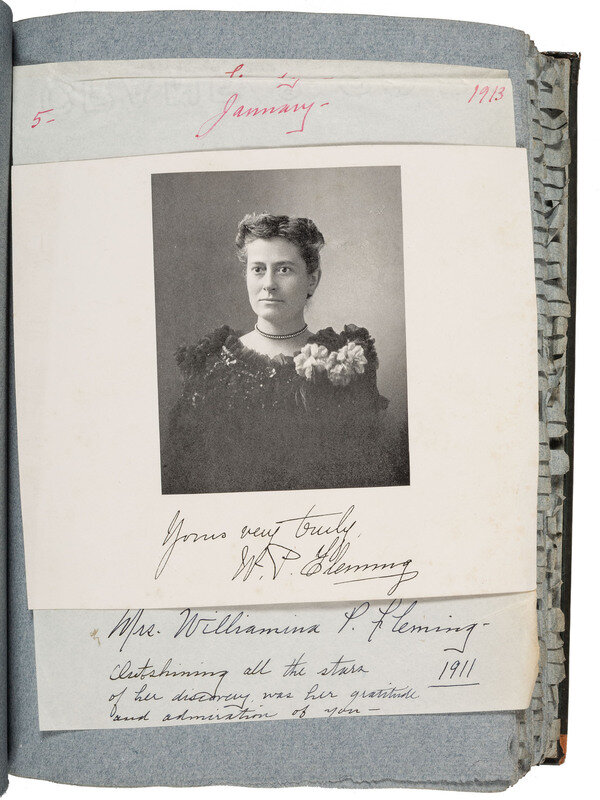 January -
1913
5 -
Yours very truly,
W. P. Fleming
Mrs. Williamina P. Fleming -
Outshining all the stars
1911
of her discovery was her gratitude
and admiration of you -